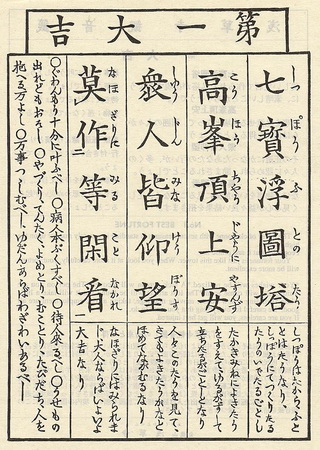 第一大吉
七寶浮圖塔
しつぽうふとのたう
高峯頂上安
こうほうちやうじやうにやすんず
衆人皆仰望
しゆうじんみなげうぼうす
莫作等閑看
なほざりにみることなかれ
とはたうなり、
しつぽうにてつくりたる
たうのいでたるごとし
たかきみねによきたう
立ちたるがごとしとなり
人々このたうを見て、
さてもよきたうかなと
ほめてながむるなり
なほざりにはみられま
じ、大人ならばいよいよ
大吉なり
〇ぐわんもう十分に叶ふべし〇病人本ぷくすべし〇待人来るべし〇うせもの
出れどもおそし〇やづくり、わたまし、よめとり、むことり、たびだち、人を
抱へる万よし〇万事つつしむべし、ゆだんあらばわざわいあるべし